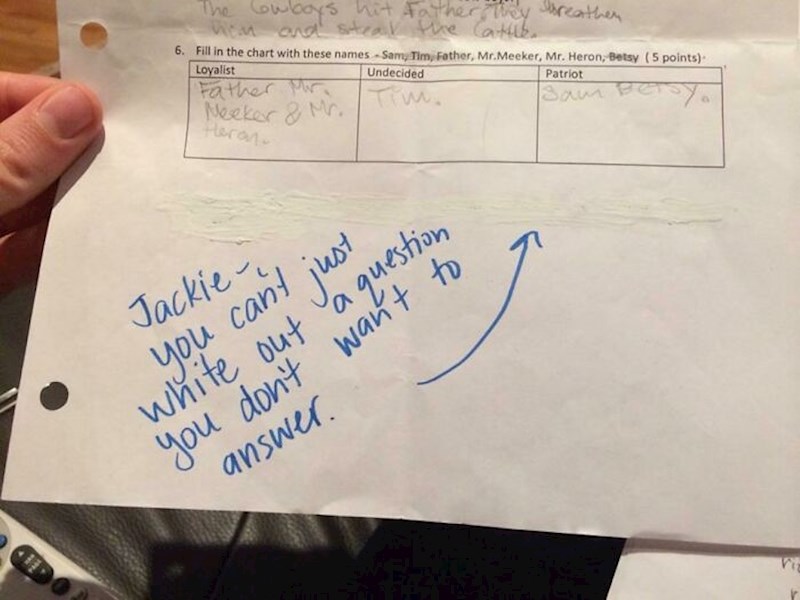 The Cowboys hit Father, they threaten
him and steal the Cattle.
6. Fill in the chart with these names - Sam, Tim, Father, Mr.Meeker, Mr. Heron, Betsy ( 5 points)
Loyalist Undecided Patriot
Father Mr. Tim. Sam Betsy.
Meeker & Mr.
Heron.
Jackie -
you can't just
white out a question
you don't want to
answer.